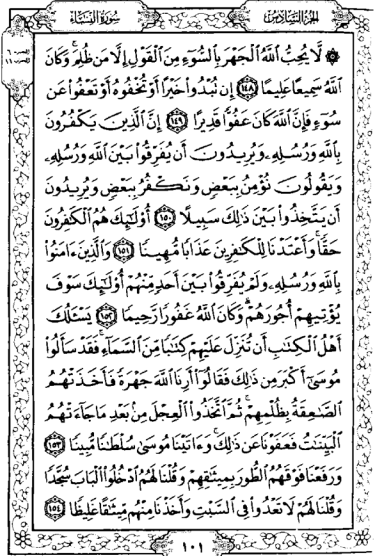 الجزء السادس
سورة النساء
۞ لَّا يُحِبُّ ٱللَّهُ ٱلْجَهْرَ بِٱلسُّوٓءِ مِنَ ٱلْقَوْلِ إِلَّا مَن ظُلِمَ ۚ وَكَانَ
ٱللَّهُ سَمِيعًا عَلِيمًا ١٤٨ إِن تُبْدُوا۟ خَيْرًا أَوْ تُخْفُوهُ أَوْ تَعْفُوا۟ عَن
سُوٓءٍ فَإِنَّ ٱللَّهَ كَانَ عَفُوًّا قَدِيرًا ١٤٩ إِنَّ ٱلَّذِينَ يَكْفُرُونَ
بِٱللَّهِ وَرُسُلِهِۦ وَيُرِيدُونَ أَن يُفَرِّقُوا۟ بَيْنَ ٱللَّهِ وَرُسُلِهِۦ
وَيَقُولُونَ نُؤْمِنُ بِبَعْضٍ وَنَكْفُرُ بِبَعْضٍ وَيُرِيدُونَ
أَن يَتَّخِذُوا۟ بَيْنَ ذَٰلِكَ سَبِيلًا ١٥٠ أُو۟لَـٰٓئِكَ هُمُ ٱلْكَـٰفِرُونَ
حَقًّا ۚ وَأَعْتَدْنَا لِلْكَـٰفِرِينَ عَذَابًا مُّهِينًا ١٥١ وَٱلَّذِينَ ءَامَنُوا۟
بِٱللَّهِ وَرُسُلِهِۦ وَلَمْ يُفَرِّقُوا۟ بَيْنَ أَحَدٍ مِّنْهُمْ أُو۟لَـٰٓئِكَ سَوْفَ
يُؤْتِيهِمْ أُجُورَهُمْ ۗ وَكَانَ ٱللَّهُ غَفُورًا رَّحِيمًا ١٥٢ يَسْـَٔلُكَ
أَهْلُ ٱلْكِتَـٰبِ أَن تُنَزِّلَ عَلَيْهِمْ كِتَـٰبًا مِّنَ ٱلسَّمَآءِ ۚ فَقَدْ سَأَلُوا۟
مُوسَىٰٓ أَكْبَرَ مِن ذَٰلِكَ فَقَالُوٓا۟ أَرِنَا ٱللَّهَ جَهْرَةً فَأَخَذَتْهُمُ
ٱلصَّـٰعِقَةُ بِظُلْمِهِمْ ۚ ثُمَّ ٱتَّخَذُوا۟ ٱلْعِجْلَ مِنۢ بَعْدِ مَا جَآءَتْهُمُ
ٱلْبَيِّنَـٰتُ فَعَفَوْنَا عَن ذَٰلِكَ ۚ وَءَاتَيْنَا مُوسَىٰ سُلْطَـٰنًا مُّبِينًا ١٥٣
وَرَفَعْنَا فَوْقَهُمُ ٱلطُّورَ بِمِيثَـٰقِهِمْ وَقُلْنَا لَهُمُ ٱدْخُلُوا۟ ٱلْبَابَ سُجَّدًا
وَقُلْنَا لَهُمْ لَا تَعْدُوا۟ فِى ٱلسَّبْتِ وَأَخَذْنَا مِنْهُم مِّيثَـٰقًا غَلِيظًا ١٥٤
١٠١